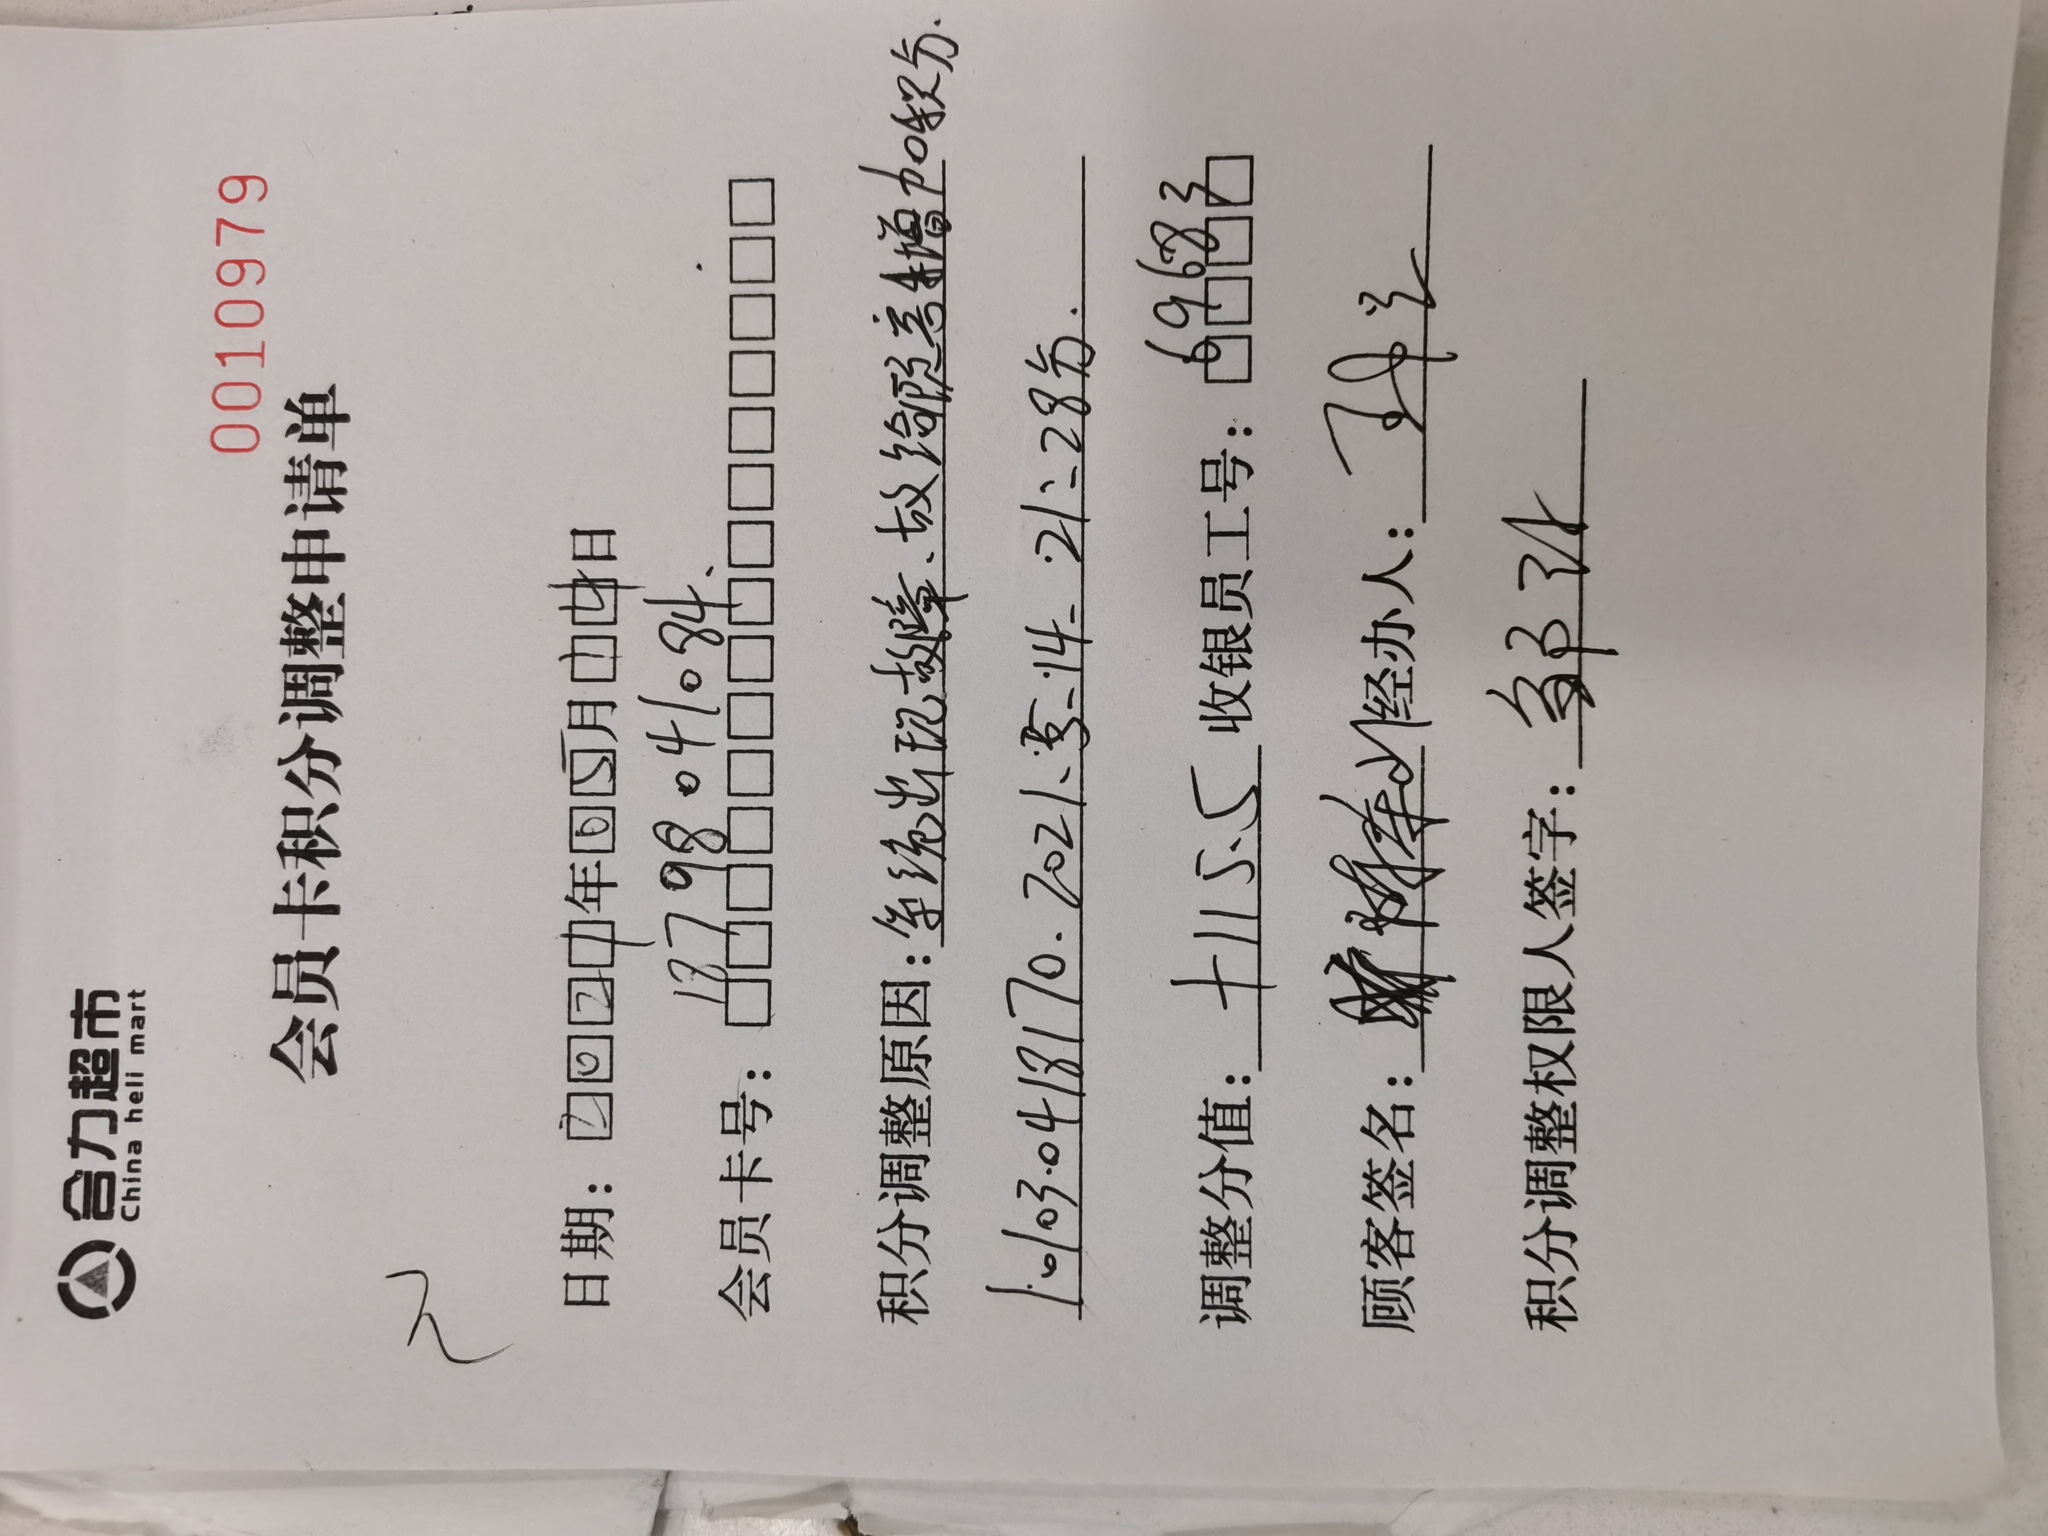 合力超市
China heli mart
0010979
会员卡积分调整申请单
日期：2021年05月14日
会员卡号：18798041084
积分调整原因：系统出现故障、故给顾客增加积分.
2021.5.14. 21:28分.
调整分值：+115.5 收银员工号：69683
顾客签名： 经办人：
积分调整权限人签字：